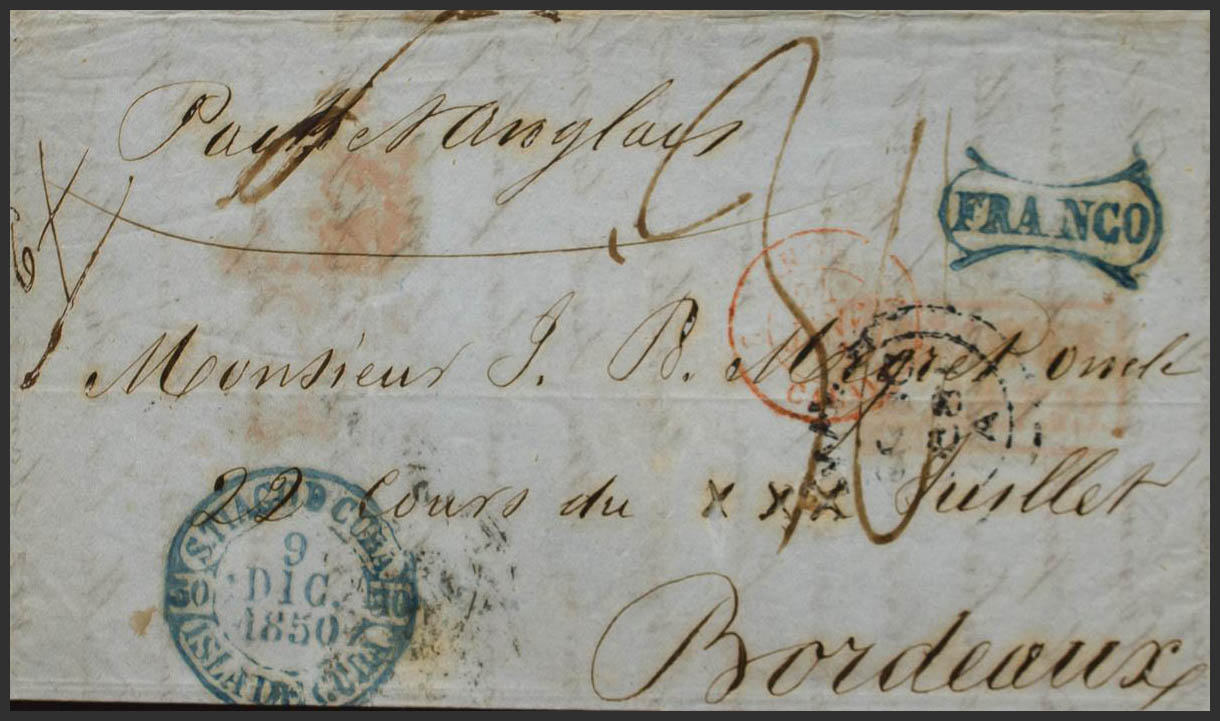 Paquet Anglais
FRANCO
Monsieur J. B. Megret oncle
22 Cours du XXX Juillet
Bordeaux
STIAGO D CUBA
9
DIC.
1850
ISLA DE CUBA